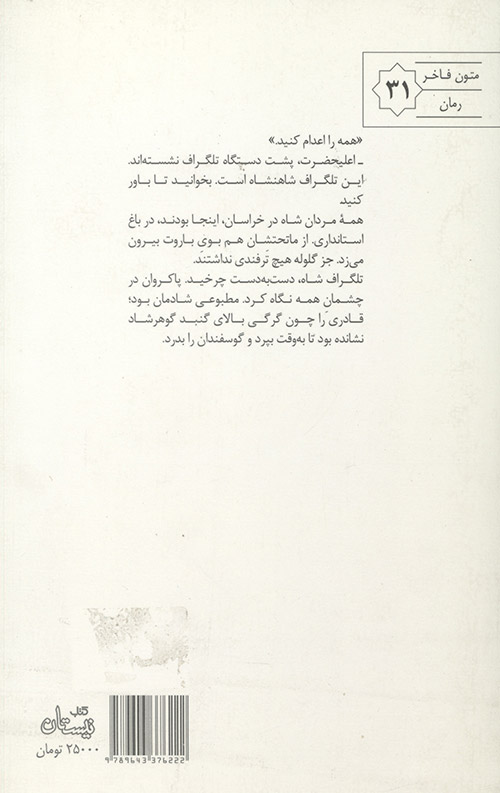 متون فاخر
۳۱
رمان
«همه را اعدام کنید.»
ـ اعلیحضرت، پشت دستگاه تلگراف نشسته‌اند.
این تلگراف شاهنشاه است. بخوانید تا باور
کنید.
همهٔ مردان شاه در خراسان، اینجا بودند، در باغ
استانداری. از ماتحتشان هم بوی باروت بیرون
می‌زد. جز گلوله هیچ تَرفندی نداشتند.
تلگراف شاه، دست‌به‌دست چرخید. پاکروان در
چشمان همه نگاه کرد. مطبوعی شادمان بود؛
قادری را چون گرگی بالای گنبد گوهرشاد
نشانده بود تا به‌وقت بپرد و گوسفندان را بدرد.
کتاب
نیستان
۲۵۰۰۰ تومان
9 789643 376222